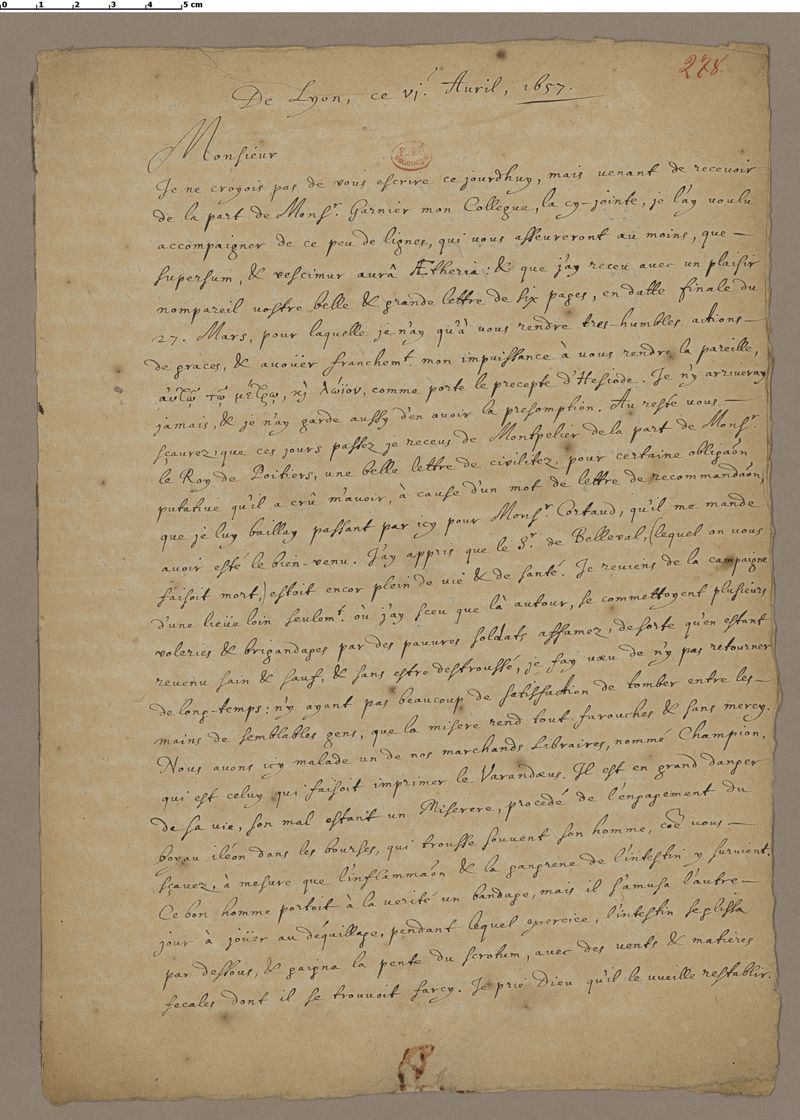 0 1 2 3 4 5 cm
278.
De Lyon, ce VI.e Auril, 1657.
Monsieur
Je ne croyois pas de vous escrire ce jourdhuy, mais venant de recevoir
de la part de Monsr. Garnier mon Collegue, la cy-jointe, je l'ay voulu
accompaigner de ce peu de lignes, qui vous asseureront au moins, que –
supersum, & vescimur aurâ Ætheria: & que j'ay receu avec un plaisir
nompareil vostre belle & grande lettre de six pages, en datte finale du
27. Mars, pour laquelle je n'ay qu'à vous rendre tres-humbles actions –
de graces, & avoüer franchemt. mon impuissance à vous rendre la pareille,
αὐτῷ τῷ μέτρῳ, καὶ λώϊον, comme porte le precepte d'Hesiode. Je n'y arriveray
jamais, & je n'ay garde aussy d'en avoir la presomption. Au reste vous –
sçaurez, que ces jours passez je receus de Montpelier de la part de Monsr.
le Roy de Poitiers, une belle lettre de civilitez, pour certaine obligaõn
putative qu'il a crû m'avoir, à cause d'un mot de lettre de recommandaõn,
que je luy baillay passant par icy pour Monsr. Cortaud, qu'il me mande
avoir esté le bien-venu. J'ay appris que le Sr. de Belleval, (lequel on vous
faisoit mort,) estoit encor plein de vie & de santé. Je reviens de la campaigne
d'une lieüe loin seulemt. où j'ay sceu que là autour, se commettoyent plusieurs
voleries & brigandages par des pauvres soldats affamez, desorte qu'en estant
revenu sain & sauf, & sans estre destroussé, je fay vœu de n'y pas retourner
de long-temps; n'y ayant pas beaucoup de satisfaction de tomber entre les –
mains de semblables gens, que la misere rend tout farouches & sans mercy.
Nous avons icy malade un de nos marchands Libraires, nommé Champion,
qui est celuy qui faisoit imprimer le Varandæus. Il est en grand danger
de sa vie, son mal estant un Miserere, procedé de l'engagement du
boyau iléon dans les bourses, qui trousse souvent son homme, coẽ vous –
sçavez, à mesure que l'inflammaõn & la gangrene de l'intestin y survient.
Ce bon homme portoit à la verité un bandage, mais il s'amusa l'autre –
jour à joüer au déquillage, pendant lequel exercice, l'intestin se glissa
par dessous, & gaigna la pente du scrotum, avec des vents & matieres
fecales dont il se trouvoit farcy. Je prie Dieu qu'il le vueille restablir.